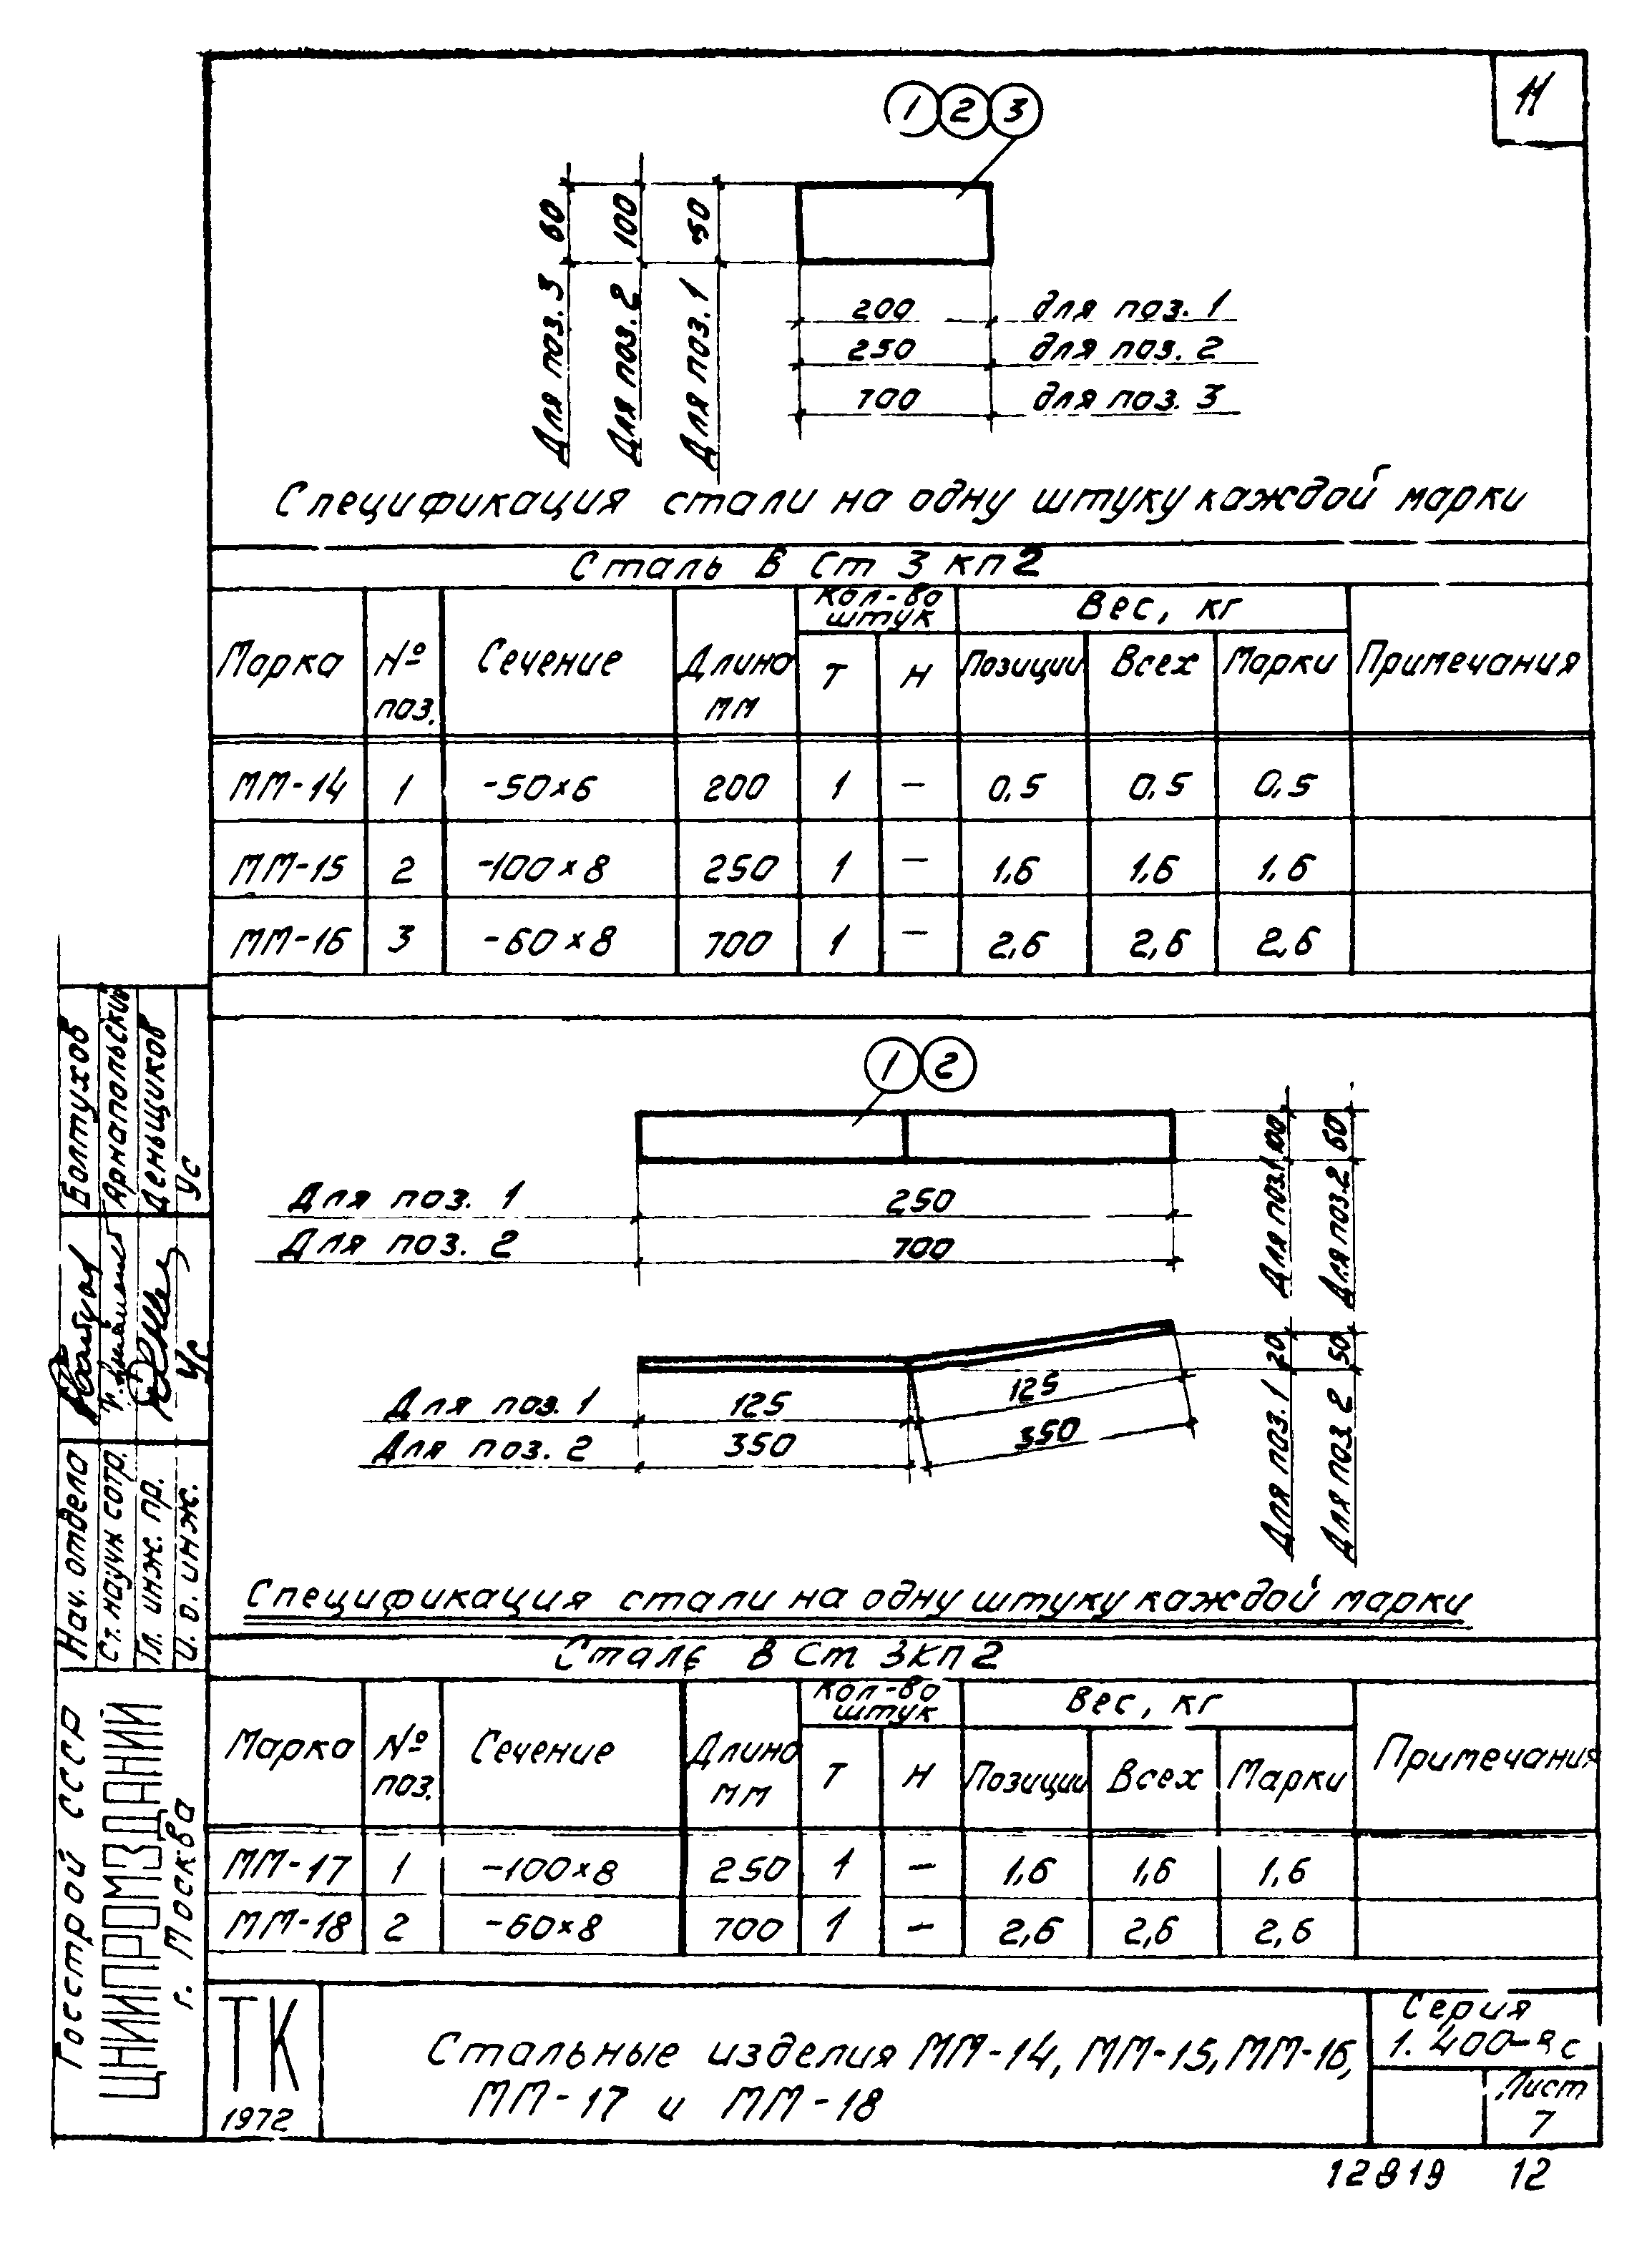 11
1 2 3
60 100 50
Для поз. 3
Для поз. 2
Для поз. 1
200 для поз. 1
250 для поз. 2
700 для поз. 3
Спецификация стали на одну штуку каждой марки
Сталь В Ст 3 кп2
Марка № поз. Сечение Длина мм Кол-во штук Т Н Вес, кг Позиции Всех Марки Примечания
ММ-14 1 -50×6 200 1 – 0,5 0,5 0,5
ММ-15 2 -100×8 250 1 – 1,6 1,6 1,6
ММ-16 3 -60×8 700 1 – 2,6 2,6 2,6
1 2
Для поз. 1 250
Для поз. 2 700
Для поз.1 100
Для поз.2 60
Для поз. 1 125 125
Для поз. 2 350 350
Для поз. 1 20
Для поз. 2 50
Спецификация стали на одну штуку каждой марки
Сталь В Ст 3кп2
Марка № поз. Сечение Длина мм Кол-во штук Т Н Вес, кг Позиции Всех Марки Примечания
ММ-17 1 -100×8 250 1 – 1,6 1,6 1,6
ММ-18 2 -60×8 700 1 – 2,6 2,6 2,6
Нач. отдела Болтухов
Ст. научн сотр. Арнапольский
Гл. инж. пр. Деньщиков
И. о. инж. Ус Ус
Госстрой СССР
ЦНИИПРОМЗДАНИЙ
г. Москва
ТК
1972
Стальные изделия ММ-14, ММ-15, ММ-16,
ММ-17 и ММ-18
Серия
1. 400-
Лист
7
12819 12